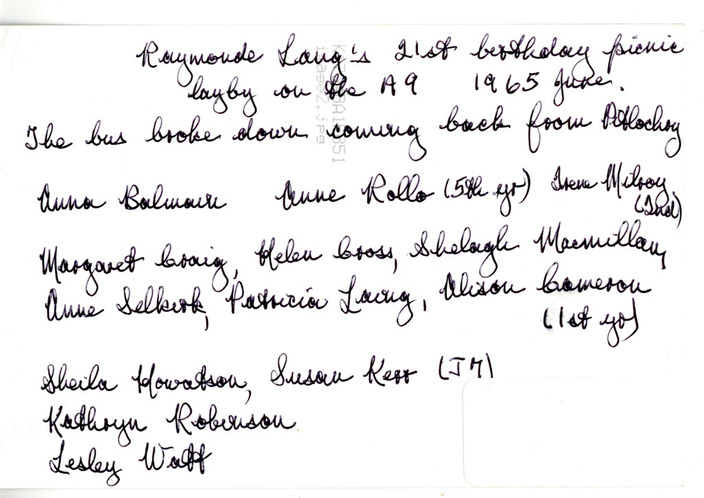 Raymonde Lang's 21st birthday picnic
layby on the A9 1965 June.
The bus broke down coming back from Pitlochry
Anna Balmain Anne Rollo (5th yr) Irene Milroy
(2nd)
Margaret Craig, Helen Cross, Shelagh Macmillan,
Anne Selkirk, Patricia Laing, Alison Cameron
(1st yr)
Sheila Howatson, Susan Kerr (J7)
Kathryn Robinson
Lesley Watt